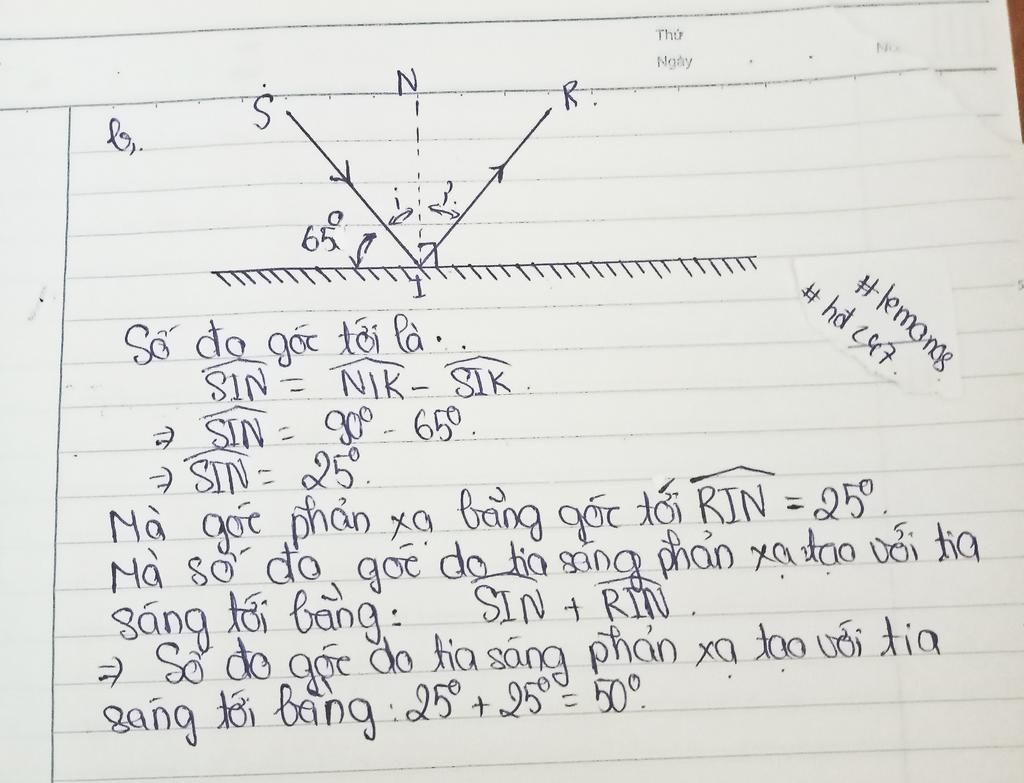 Thứ
Ngày
No.
b,.
S N R.
i i'
65°
I
#lemang
#hdc97.
Số đo góc tới là...
SIN = NIK - SIK.
=> SIN = 90° - 65°.
=> SIN = 25°.
Mà góc phản xạ bằng góc tới RIN = 25°.
Mà số đo góc do tia sáng phản xạ tạo với tia
sáng tới bằng: SIN + RIN.
=> Số đo góc do tia sáng phản xạ tạo với tia
sáng tới bằng: 25° + 25° = 50°.